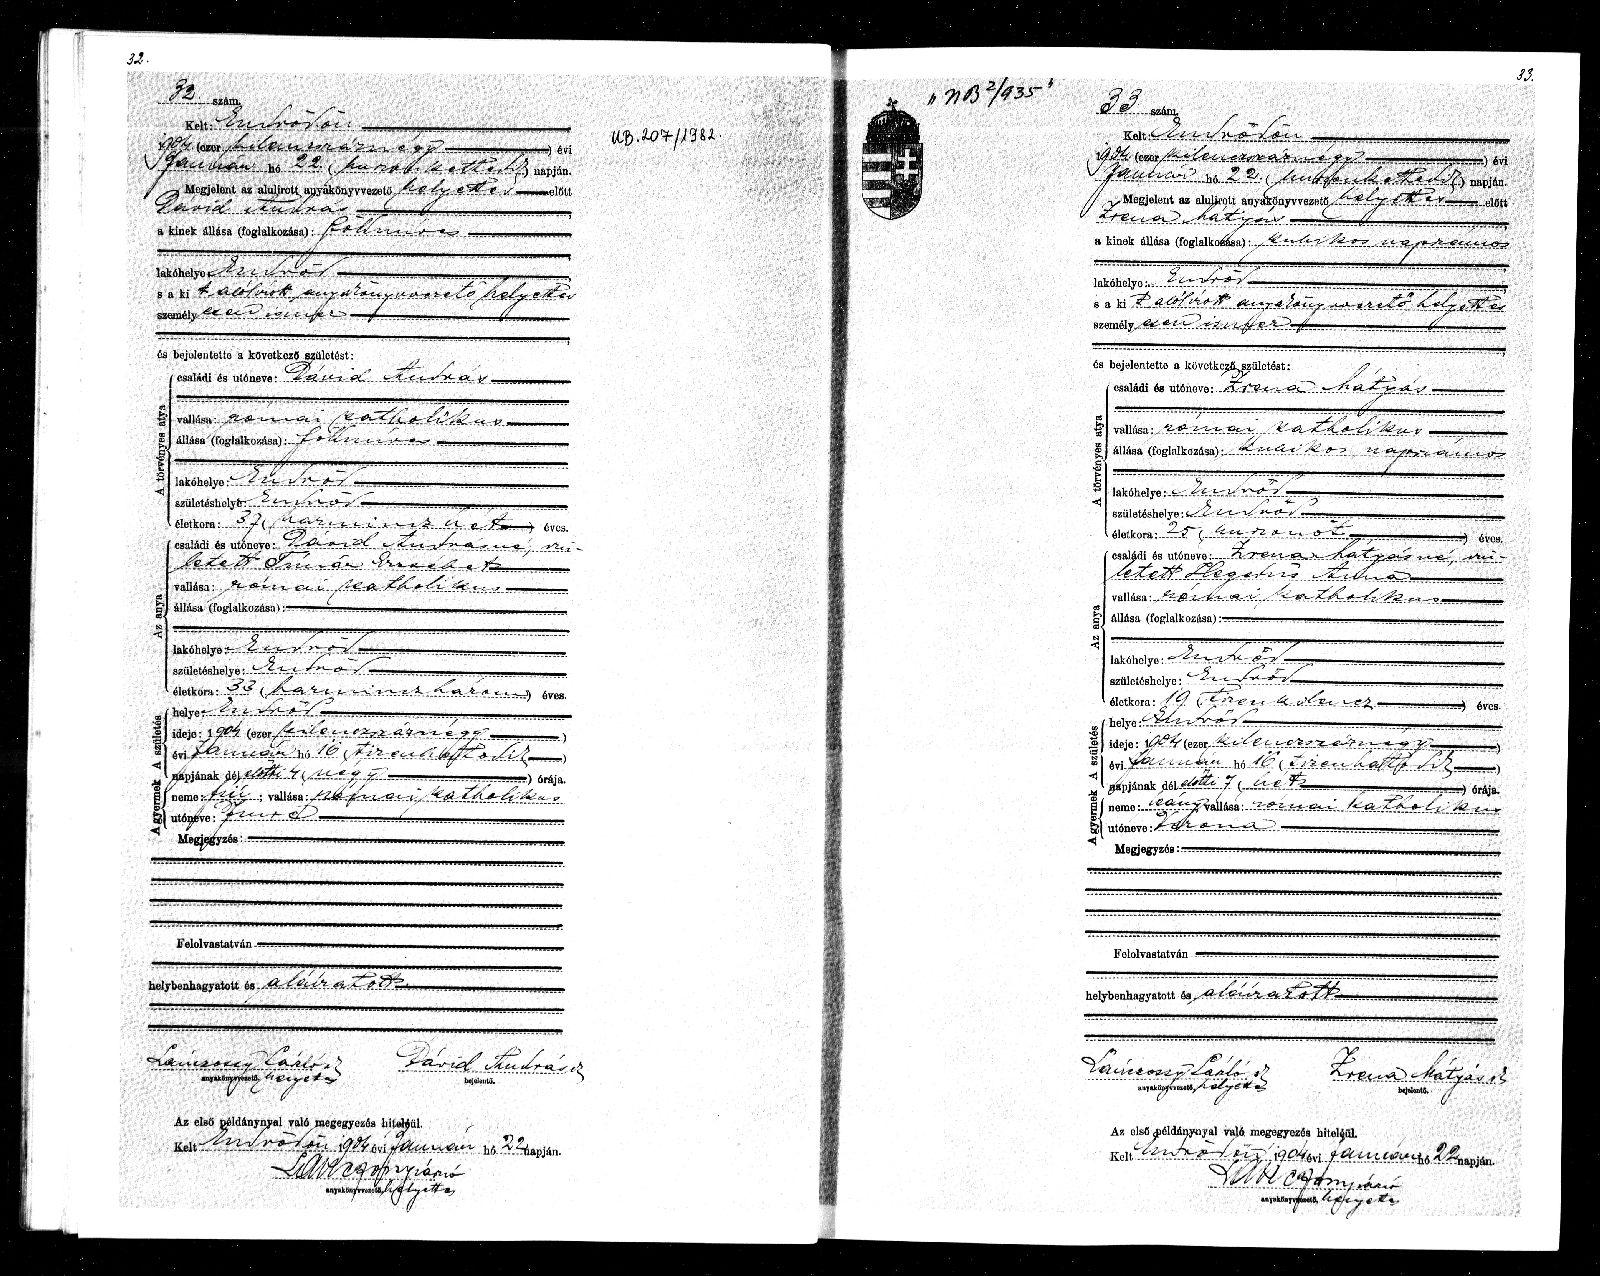 32.
32 szám.
Kelt: Endrődön
1904 (ezer kilenczszáznégy) évi
Január hó 22 (huszonkettedik) napján.
Megjelent az alulirott anyakönyvvezető helyettes előtt
Dávid András
a kinek állása (foglalkozása): földmíves
lakóhelye: Endrőd
s a ki t alólírott anyakönyvvezető helyettes
személyesen ismer
és bejelentette a következő születést:
A törvényes atya
családi és utóneve: Dávid András
vallása: római katholikus
állása (foglalkozása): földmíves
lakóhelye: Endrőd
születéshelye: Endrőd
életkora: 37 (harminczhét) éves.
Az anya
családi és utóneve: Dávid Andrásné, szü-
letett Tímár Erzsébet
vallása: római katholikus
állása (foglalkozása):
lakóhelye: Endrőd
születéshelye: Endrőd
életkora: 33 (harminczhárom) éves.
A születés
helye: Endrőd
ideje: 1904 (ezer kilenczszáznégy)
évi január hó 16 (tizenhatodik)
napjának dél előtti 4 (négy) órája.
A gyermek
neme: fiú; vallása: római katholikus
utóneve: Imre
Megjegyzés:
Felolvastatván
helybenhagyatott és aláíratott
Dávid András
anyakönyvvezető, helyettes
bejelentő.
Az első példánynyal való megegyezés hiteléül.
Kelt Endrődön 1904 évi január hó 22 napján.
anyakönyvvezető, helyettes
UB. 207/1982.
"NB 2/935"
33.
33 szám.
Kelt: Endrődön
1904 (ezer kilenczszáznégy) évi
Január hó 22 (huszonkettedik) napján.
Megjelent az alulirott anyakönyvvezető helyettes előtt
Zrena Mátyás
a kinek állása (foglalkozása): kubikos napszámos
lakóhelye: Endrőd
s a ki t alólírott anyakönyvvezető helyettes
személyesen ismer
és bejelentette a következő születést:
A törvényes atya
családi és utóneve: Zrena Mátyás
vallása: római katholikus
állása (foglalkozása): kubikos napszámos
lakóhelye: Endrőd
születéshelye: Endrőd
életkora: 25 (huszonöt) éves.
Az anya
családi és utóneve: Zrena Mátyásné, szü-
letett Hegedűs Anna
vallása: római katholikus
állása (foglalkozása):
lakóhelye: Endrőd
születéshelye: Endrőd
életkora: 19 (tizenkilencz) éves.
A születés
helye: Endrőd
ideje: 1904 (ezer kilenczszáznégy)
évi január hó 16 (tizenhatodik)
napjának dél előtti 7 (hét) órája.
A gyermek
neme: leány; vallása: római katholikus
utóneve: Verona
Megjegyzés:
Felolvastatván
helybenhagyatott és aláíratott
Zrena Mátyás
anyakönyvvezető, helyettes
bejelentő.
Az első példánynyal való megegyezés hiteléül.
Kelt Endrődön 1904 évi január hó 22 napján.
anyakönyvvezető, helyettes